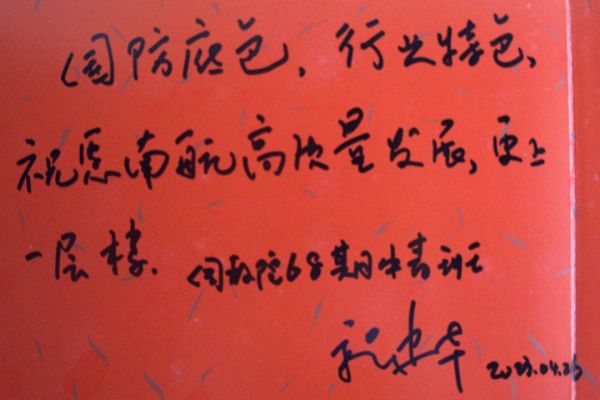 国防底色，行业特色，
祝愿南航高质量发展，更上
一层楼. 国教院68期中青班
2023.04.26